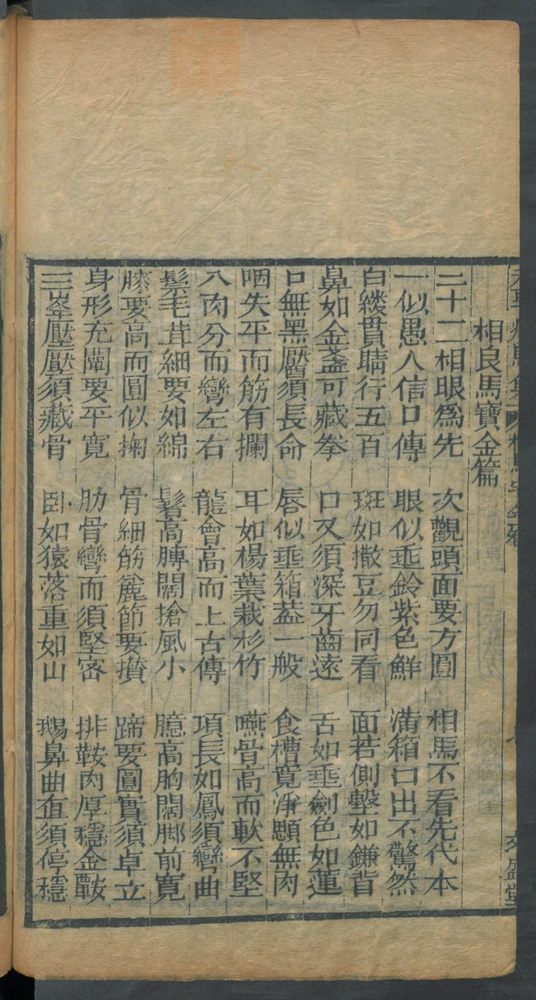 相良馬寶金篇
三十二相眼爲先　次觀頭面要方圓　相馬不看先代本
一似愚人信口傳　眼似垂鈴紫色鮮　滿箱凸出不驚然
白縷貫睛行五百　斑如撒豆勿同看　面若側磚如鎌背
鼻如金盞可藏拳　口叉須深牙齒遠　舌如垂劍色如蓮
口無黑靨須長命　唇似垂箱蓋一般　食槽寬淨顋無肉
咽失平而筋有攔　耳如楊葉裁杉竹　嚥骨高而軟不堅
八肉分而彎左右　龍會高而上古傳　項長如鳳須彎曲
鬃毛茸細要如綿　鬐高膊闊搶風小　臆高胸闊脚前寬
膝要高而圓似掬　骨細筋麄節要攢　蹄要圓實須卓立
身形充闊要平寬　肋骨彎而須堅密　排鞍肉厚穩金鞍
三峯壓壓須藏骨　臥如猿落重如山　鵝鼻曲直須停穩